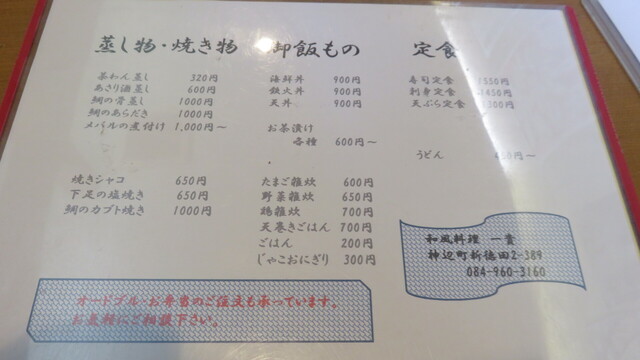 蒸し物・焼き物
茶わん蒸し 320円
あさり酒蒸し 600円
鯛の骨蒸し 1000円
鯛のあらだき 1000円
メバルの煮付け 1,000円～
焼きシャコ 650円
下足の塩焼き 650円
鯛のカブト焼き 1000円
御飯もの
海鮮丼 900円
鉄火丼 900円
天丼 900円
お茶漬け
各種 600円～
たまご雑炊 600円
野菜雑炊 650円
鶏雑炊 700円
天巻きごはん 700円
ごはん 200円
じゃこおにぎり 300円
定食
寿司定食 1550円
刺身定食 1450円
天ぷら定食 1300円
うどん
和風料理 一貴
神辺町新徳田2-389
084-960-3160
オードブル・お弁当のご注文も承っています。
お気軽にご相談下さい。